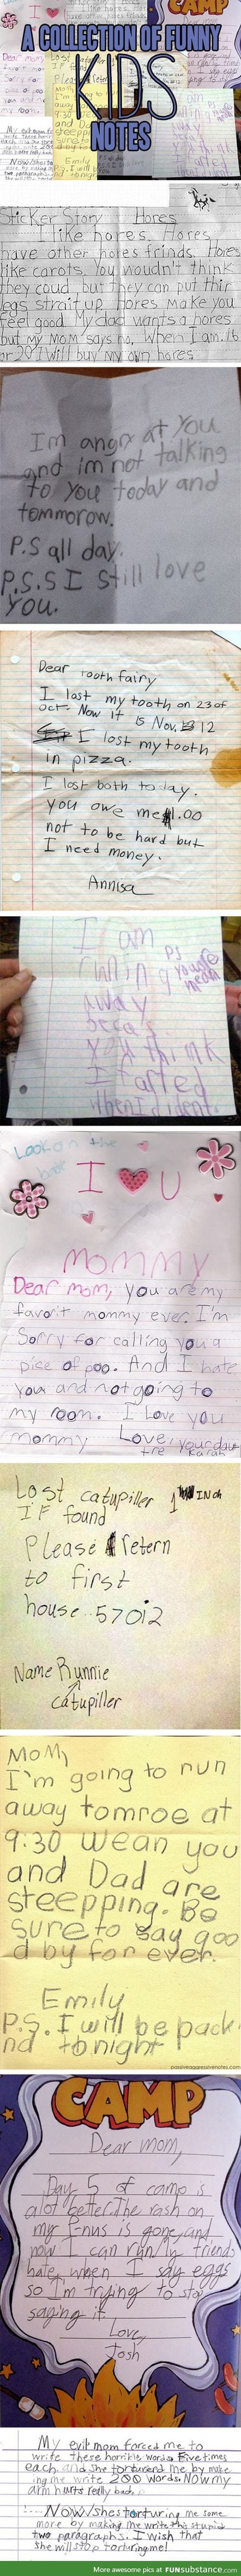 CAMP
A COLLECTION OF FUNNY
KIDS
NOTES
Sticker Story Hores
I like hores. Hores
have other hores frinds. Hores
like carots. You woudn't think
they coud but they can put thir
legs strait up. Hores make you
feel good. My dad wants a hores
but my mom says no. When I am 16
or 20 I will buy my own hores.
Im angry at you
and im not talking
to you today and
tommorow.
P.S all day.
P.S.S I still love
you.
Dear tooth fairy
I last my tooth on 23 of
oct. Now it is Nov. 12
I lost my tooth
in pizza.
I lost both today.
you owe me $1.00
not to be hard but
I need money.
Annisa
I am
runing
away
becas
you think
I farted
when I didnt
PS
your
mean
Look on the
back
I U
Mommy
Dear mom, you are my
favorit mommy ever. I'm
Sorry for calling you a
pice of poo. And I hate
you and not going to
my room. I Love you
mommy Love, your daut
Lost catupiller 1 INch
IF found
Please retern
to first
house. 57012
Name Runnie
catupiller
Mom,
I'm going to run
away tomroe at
9:30 wean you
and Dad are
steepping. Be
sure to say goo
d by for ever.
Emily
P.S. I will be pack
nd tonight
passiveaggressivenotes.com
CAMP
Dear Mom,
Day 5 of camp is
alot better. The rash on
my is gone, and
now I can run. My friends
hate when I say eggs
so I'm trying to stop
saying it.
Love,
Josh
My evil mom forced me to
write these horrible words Five times
each and she torturerd me by make
ing me write 200 words. Now my
arm hurts really bad.
Now/she's torturing me some
more by making me write this stupid
two paragraphs. I wish that
she will stop torturing me!
More awesome pics at FUNsubstance.com